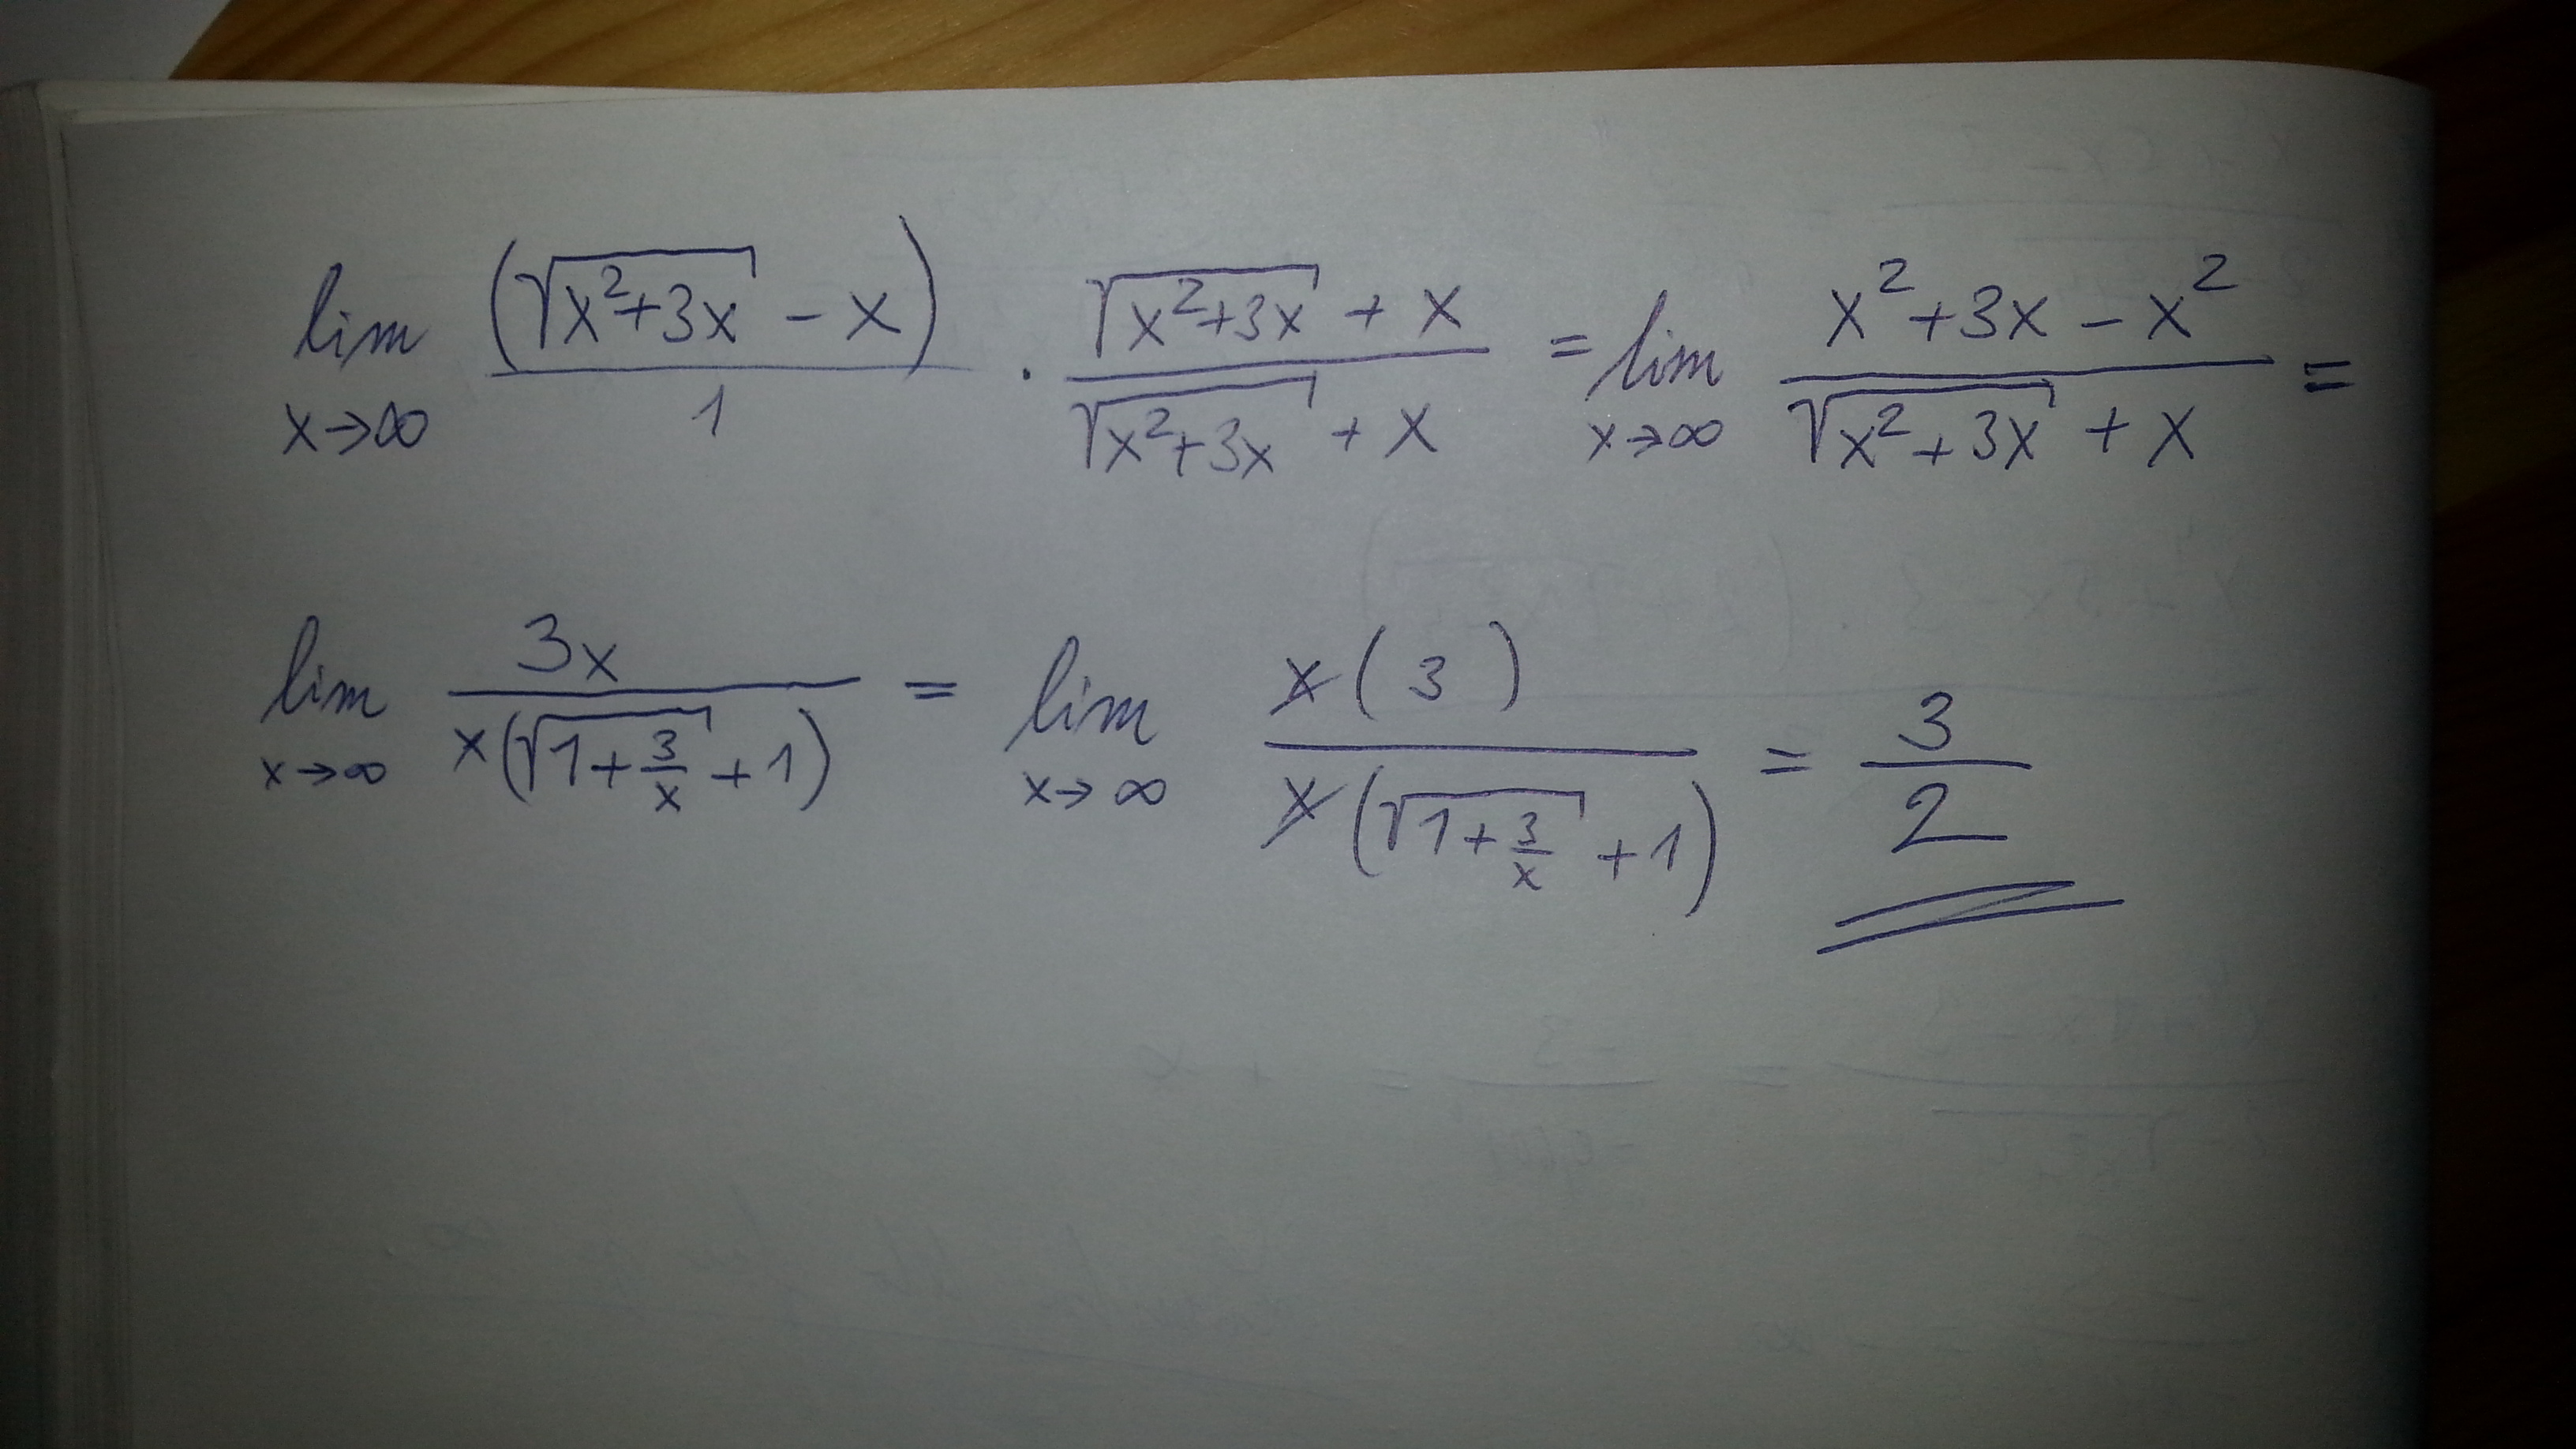 lim x→∞ (√(x²+3x) - x)/1 · (√(x²+3x) + x)/(√(x²+3x) + x) = lim x→∞ (x²+3x-x²)/(√(x²+3x) + x) =
lim x→∞ 3x/(x(√(1+3/x) +1)) = lim x→∞ x(3)/(x(√(1+3/x) +1)) = 3/2